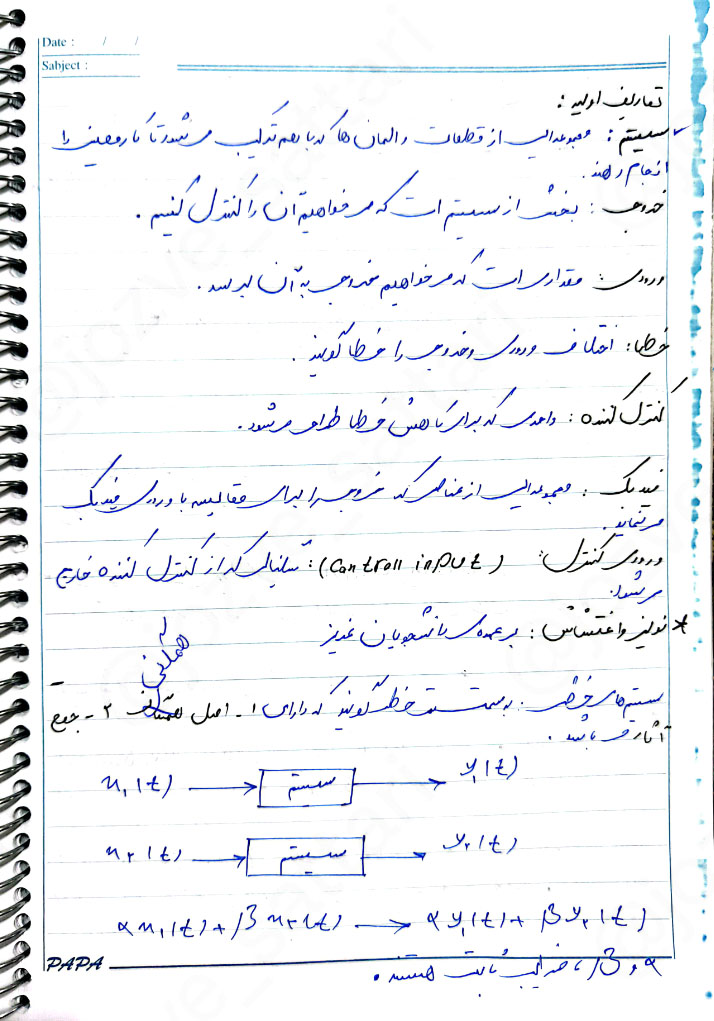 Date : / /
Sabject :
تعاریف اولیه :
سیستم : مجموعه‌ای از قطعات و المان ها که با هم ترکیب می شود تا کار معینی را
انجام دهند.
خروجی : بخشی از سیستم است که می خواهیم آن را کنترل کنیم .
ورودی : مقداری است که می خواهیم خروجی به آن برسد .
خطا : اختلاف ورودی و خروجی را خطا گویند .
کنترل کننده : واحدی که برای کاهش خطا طراحی می شود .
فیدبک : مجموعه‌ای از عناصر که خروجی را برای مقایسه با ورودی فیدبک
می نماید .
ورودی کنترل : (Controll input) : سیگنالی که از کنترل کننده خارج
می شود.
* نویز و اغتشاش : بر عهده‌ی دانشجویان عزیز
همگنی
سیستم‌های خطی : به سیستمی خطی گویند که دارای ۱ - اصل ۲ - جمع
آثار می باشد .
x₁(t) → سیستم → y₁(t)
x₂(t) → سیستم → y₂(t)
αx₁(t) + βx₂(t) → αy₁(t) + βy₂(t)
α و β ، ضرایب ثابت هستند .
PAPA